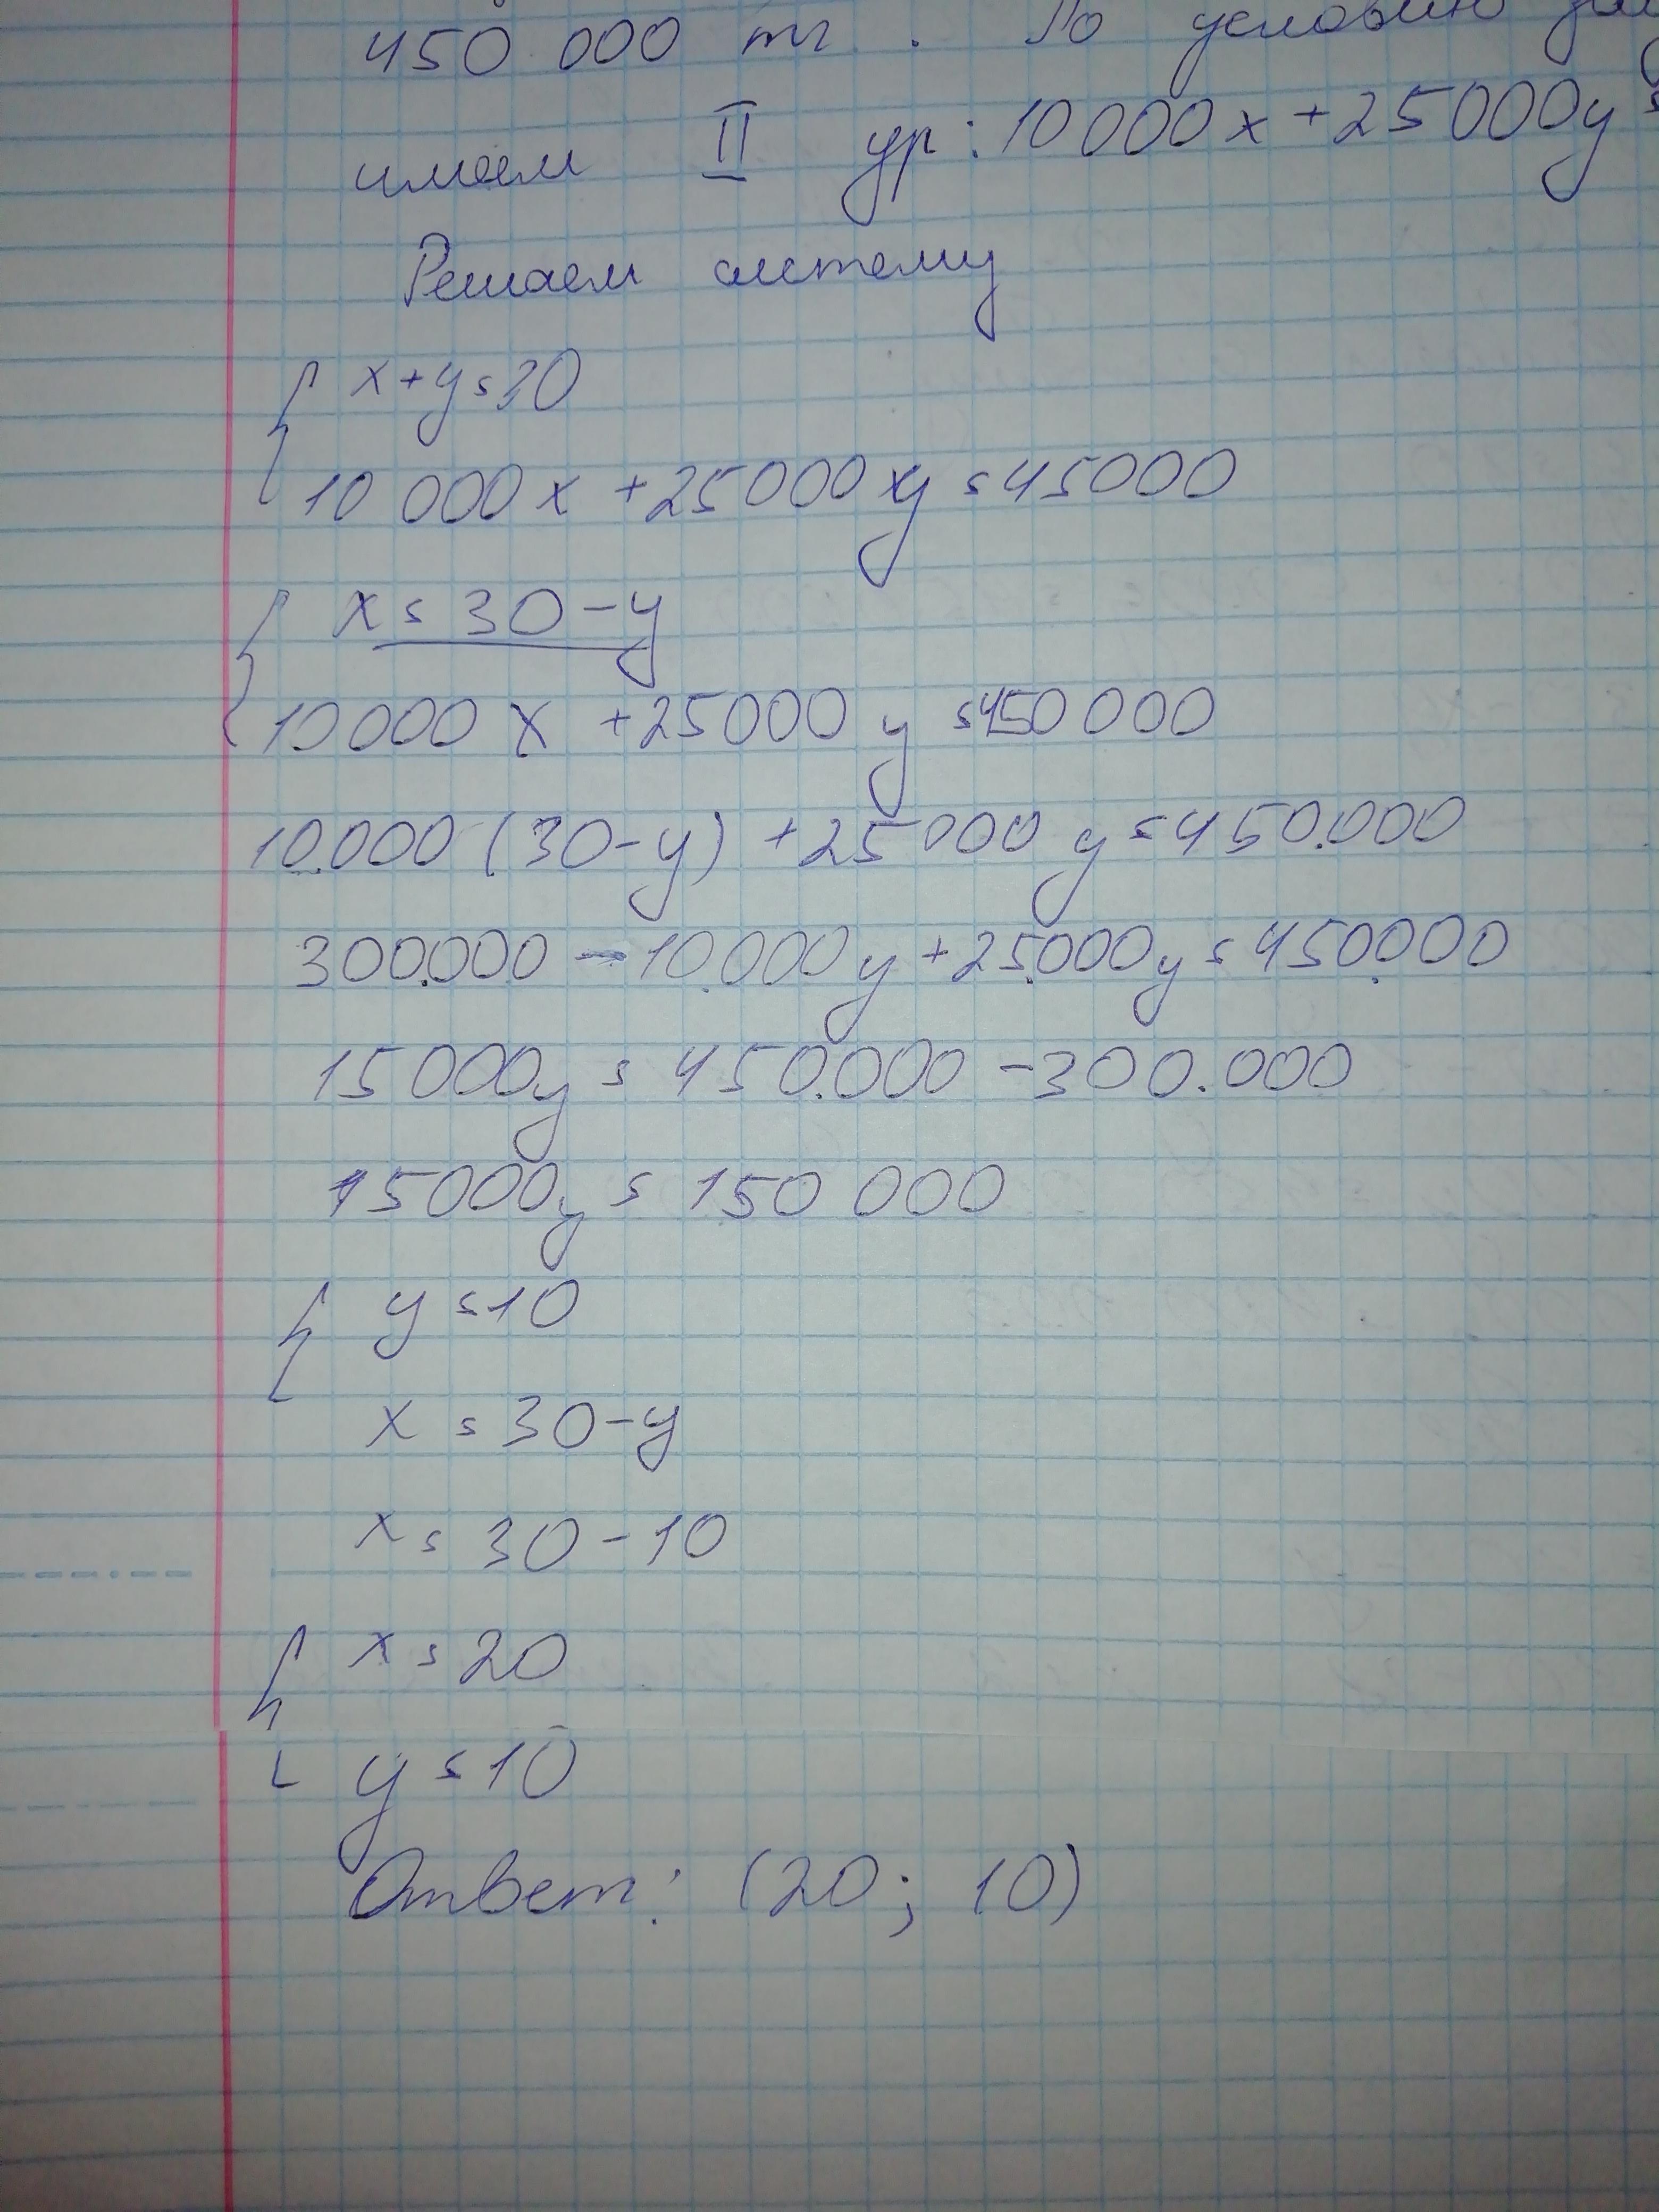 450 000 тг. По условию
имеем II ур: 10000x + 25000y =
Решаем систему
x + y = 30
10 000x + 25000 xy = 45000
x = 30 - y
10000 x + 25000 y = 450 000
10.000 (30 - y) + 25 000 y = 450.000
300.000 - 10.000y + 25.000y = 450.000
15 000y = 450.000 - 300.000
15000y = 150 000
y = 10
x = 30 - y
x = 30 - 10
x = 20
y = 10
Ответ: (20; 10)